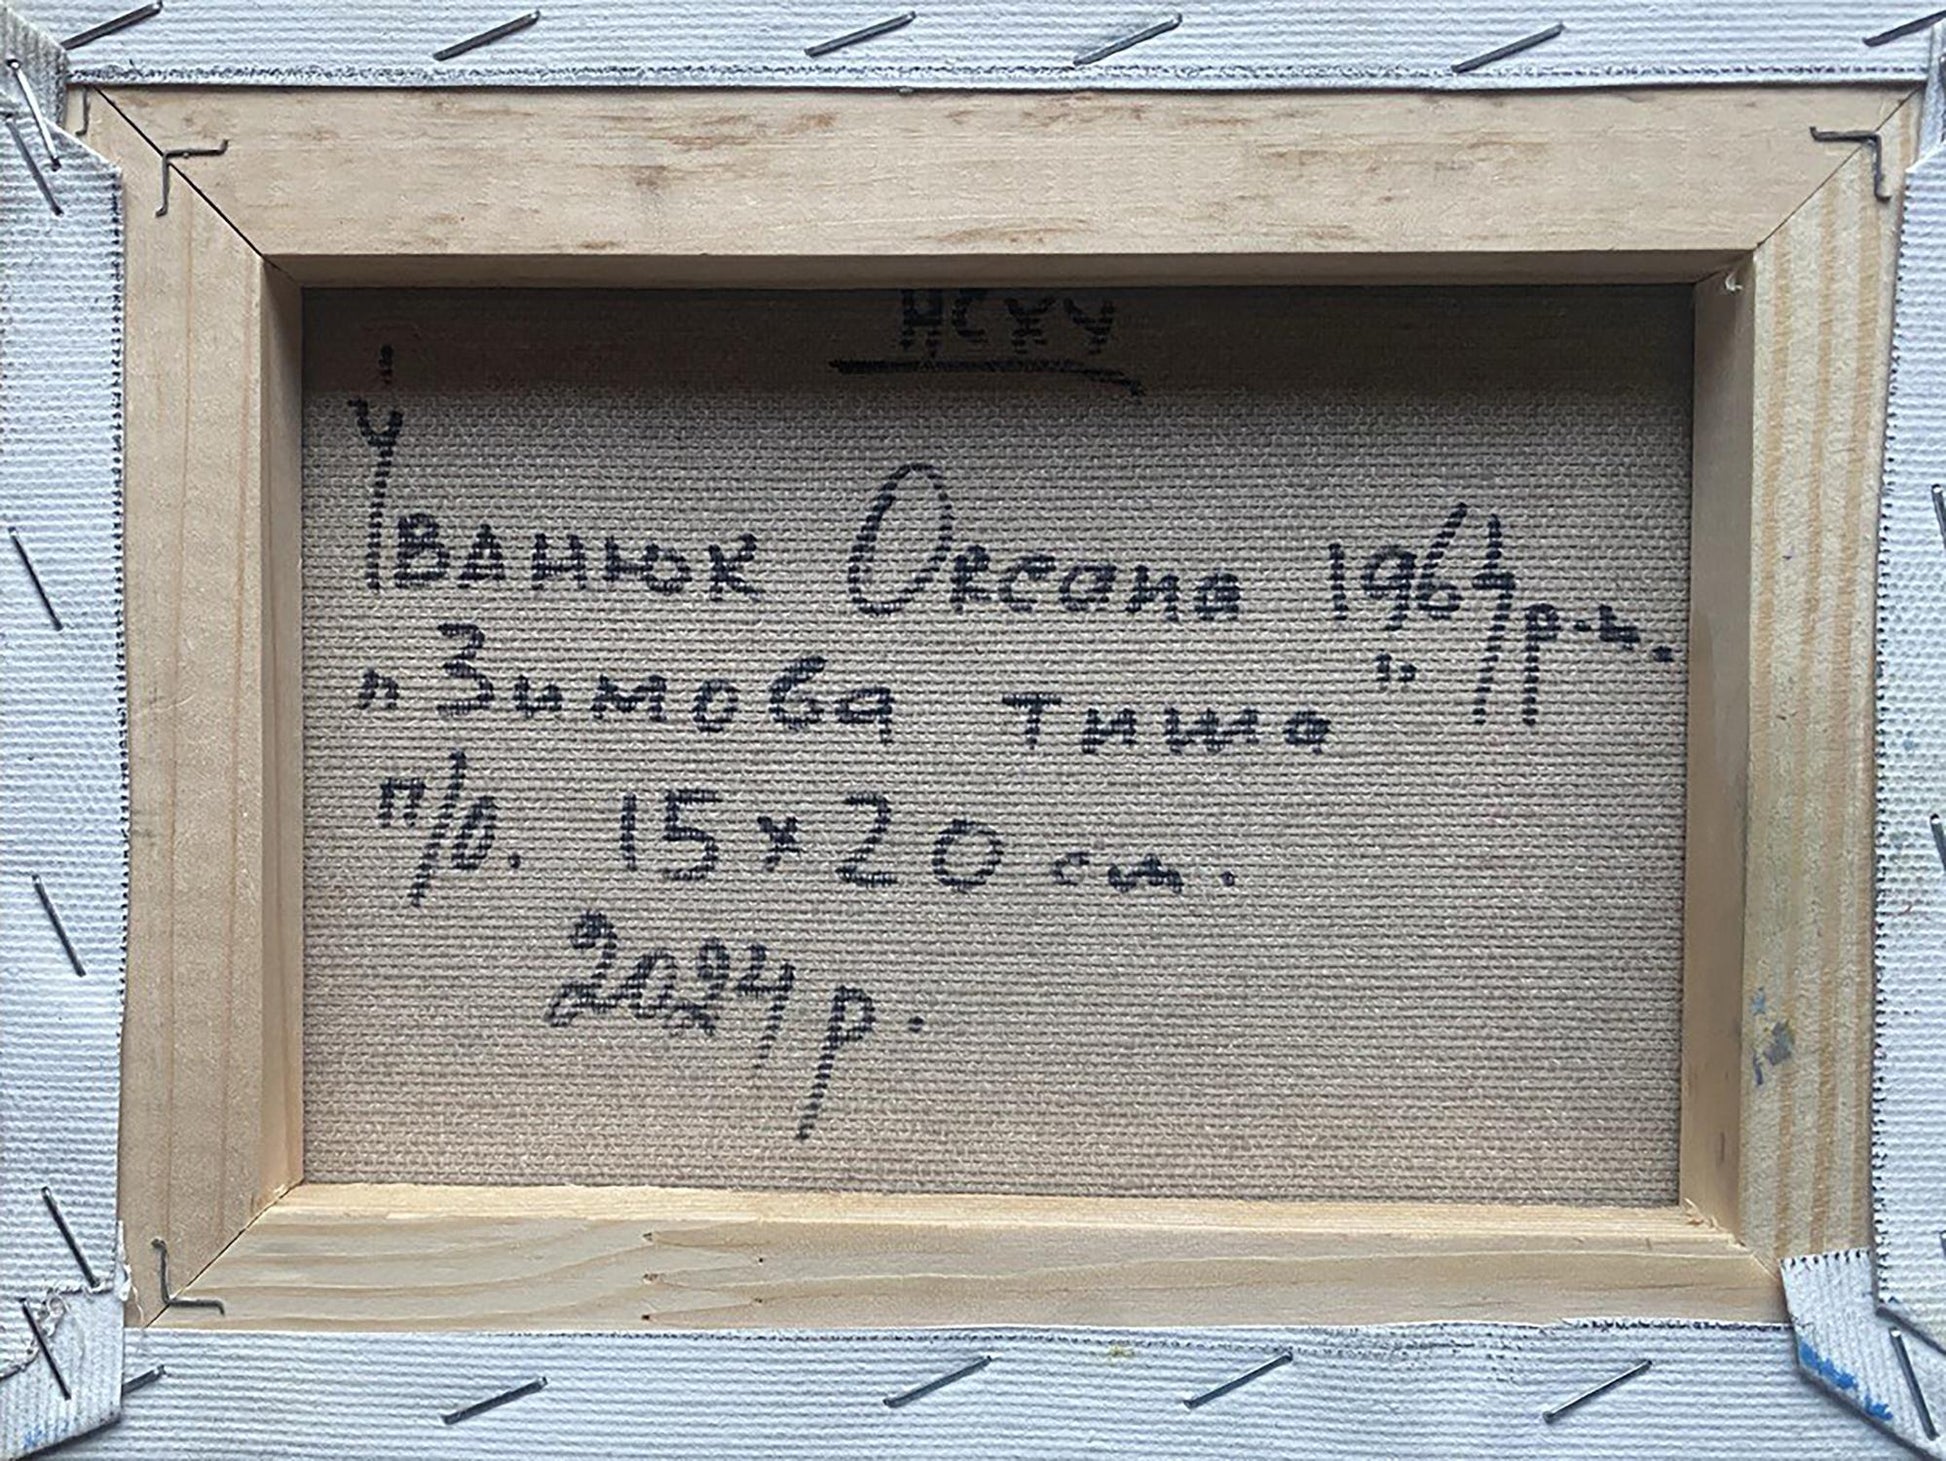 НСХУ
Іванюк Оксана 1964 р.н.
"Зимова тиша"
п/о. 15×20 см.
2024 р.